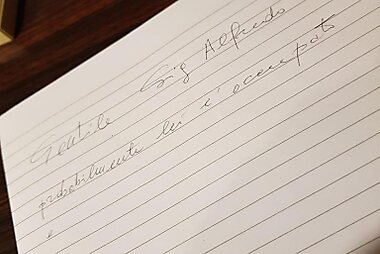 Gentile Sig Alfredo
probabilmente lei è occupato
e